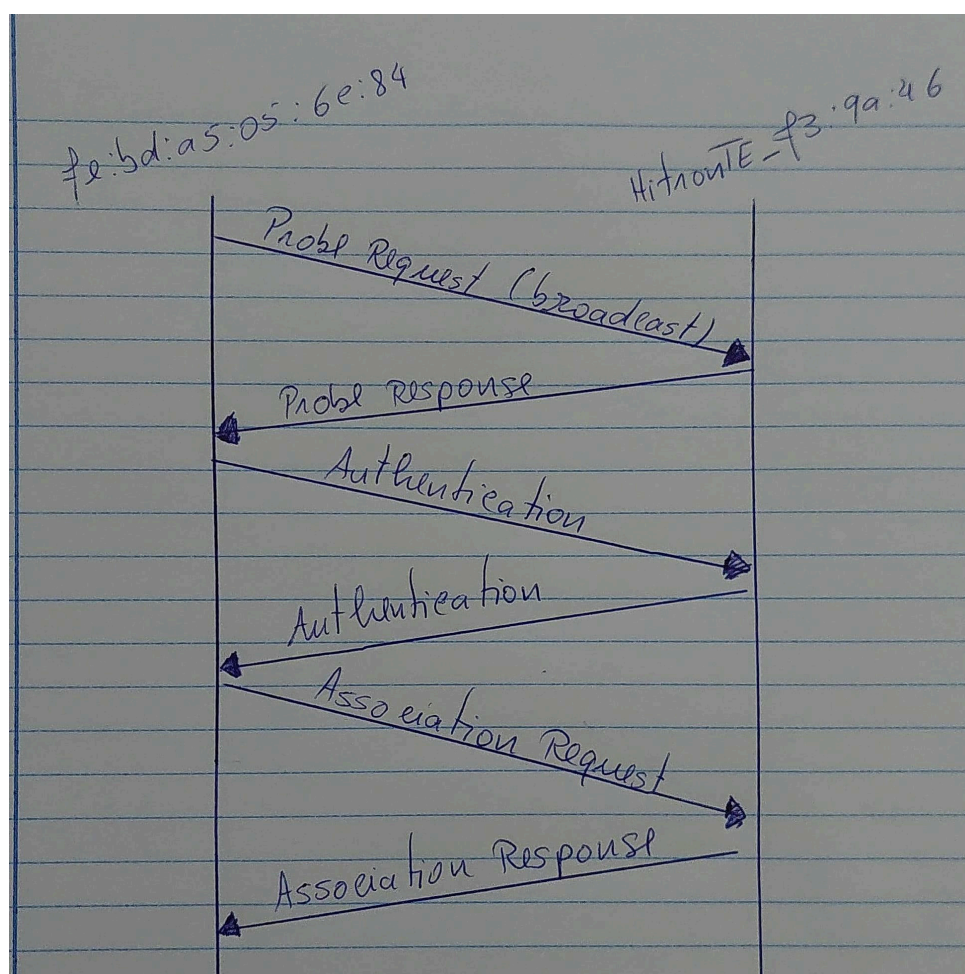 fe:bd:a5:05:6e:84
HitronTE_f3:9a:46
Probe Request (broadcast)
Probe Response
Authentication
Authentication
Association Request
Association Response